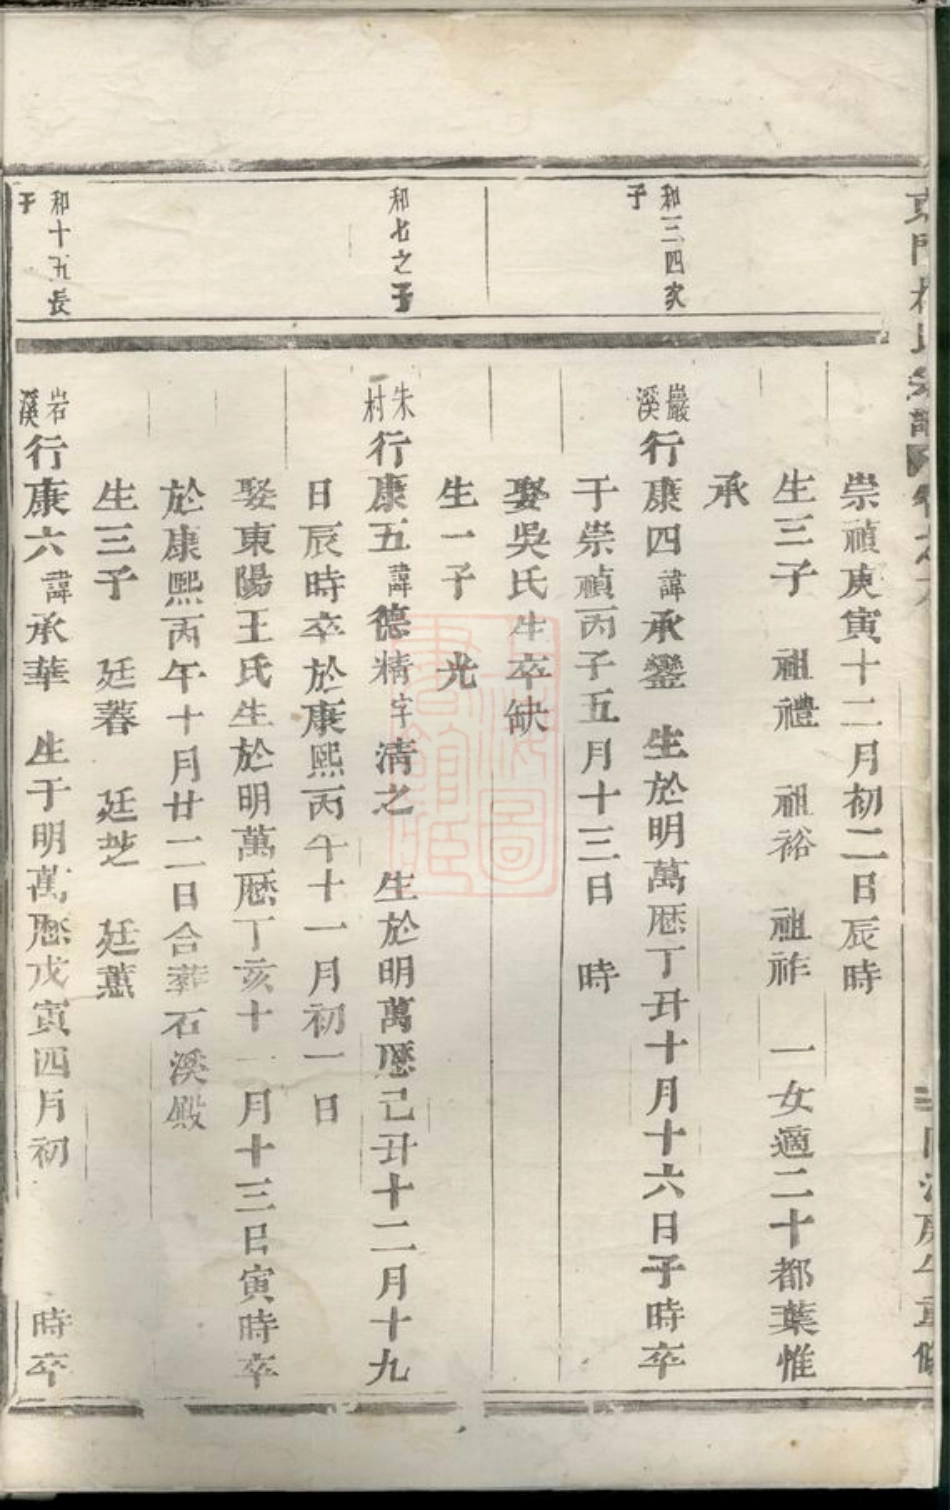 崇禎庚寅十二月初二日辰時
生三子 祖禮 祖裕 祖祚 一女適二十都葉惟
承
和三四家
子
巖溪行康四諱承鑾 生於明萬厯丁丑十月十六日子時卒
于崇禎丙子五月十三日 時
娶吳氏生卒缺
生一子 光
和七之子
朱村行康五諱德精字清之 生於明萬厯己丑十二月十九
日辰時卒於康熙丙午十一月初一日
娶東陽王氏生於明萬厯丁亥十一月十三日寅時卒
於康熙丙午十月廿二日合葬石溪殿
生三子 廷蓉 廷芝 廷蕙
和十五長
子
岩溪行康六諱承華 生于明萬厯戊寅四月初 時卒